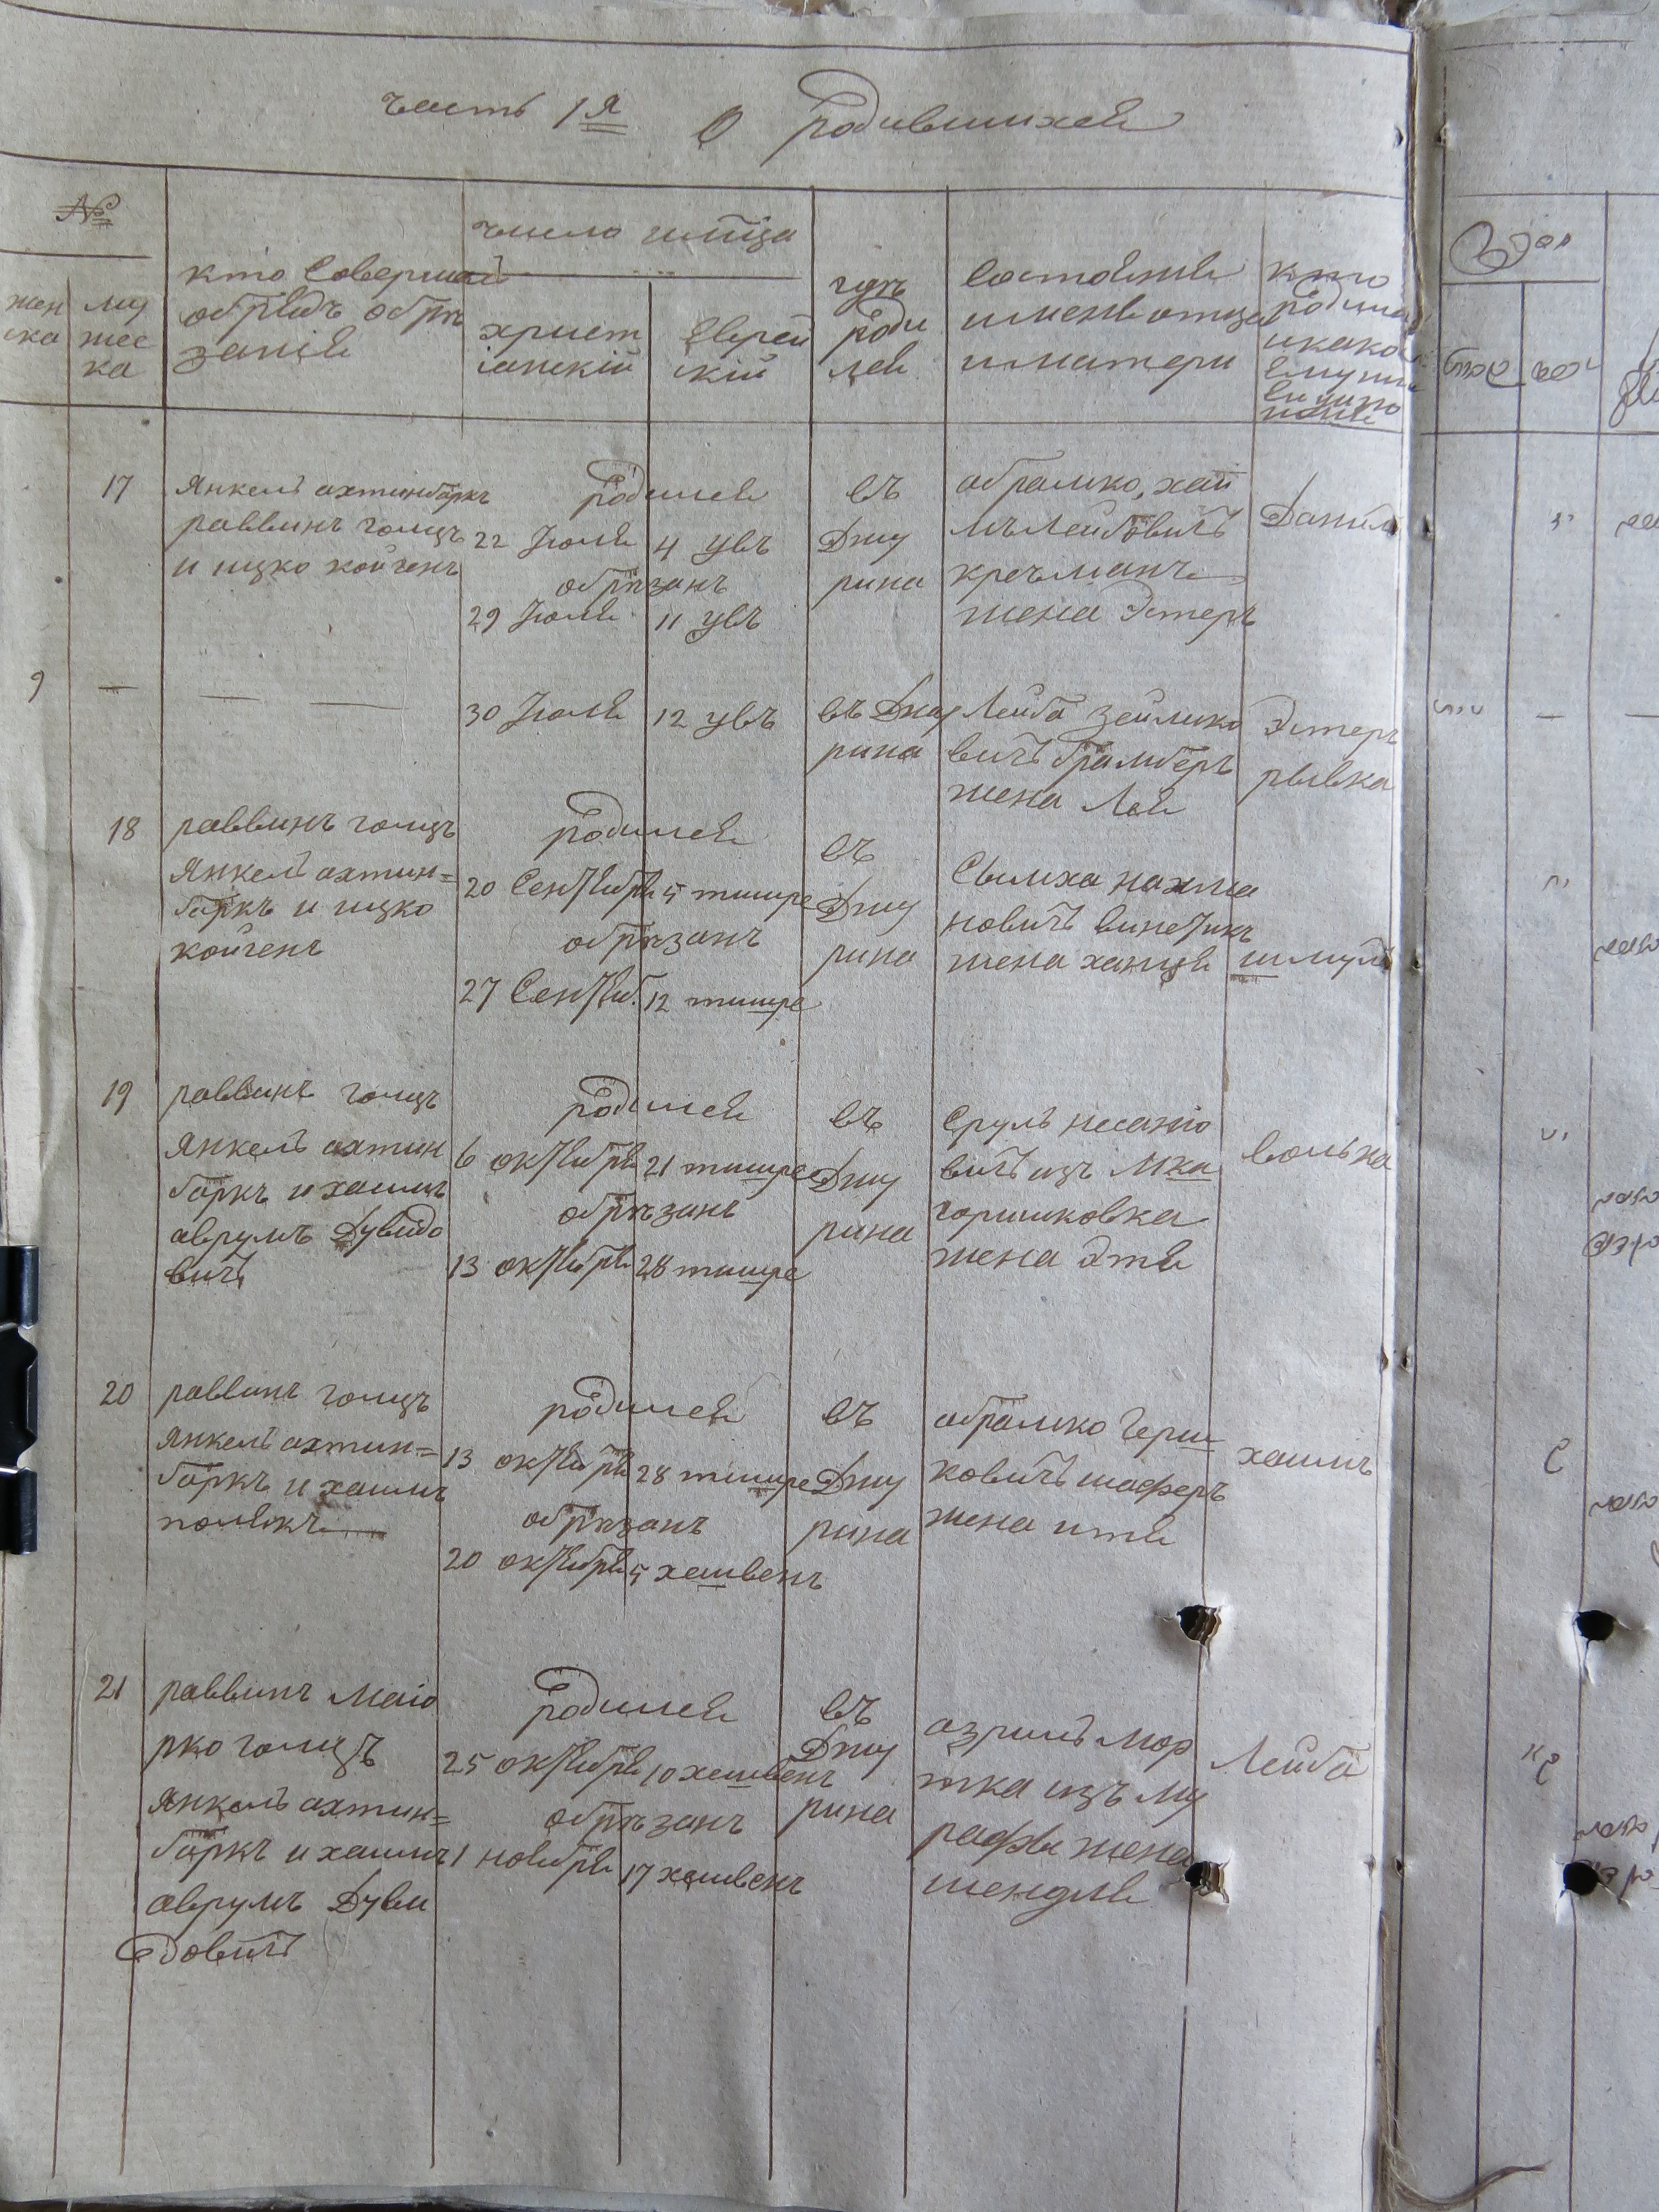 часть 1я О родившихся
№
жен
ска
муж
жес
ка
кто совершал
обрядъ обрѣ
занія
число имѣца
христ
іанскій
еврей
скій
гдѣ
роди
лся
состояніе
имена отца
и матери
кто
родился
и какое
ему или
ей дано
имя
17
Янкель ахтинбаркъ
раввинъ голцъ
и ицко койгенъ
родился
22 Іюля 4 увъ
обрѣзанъ
29 Іюля 11 увъ
въ
Джу
рина
абрамко, хай
мълейбовичъ
кречманъ
жена Эстеръ
Данилъ
9 — — —
30 Іюля 12 увъ
въ Джу
рина
Лейба Зейлико
вичъ брамберъ
жена Лея
Эстеръ
рывка
18
раввинъ голцъ
Янкель ахтин=
баркъ и ицко
койгенъ
родился
20 Сентября 5 тишре
обрѣзанъ
27 Сентяб. 12 тишре
въ
Джу
рина
Сымха нахма
новичъ винетикъ
жена ханця
шмуль
19
раввинъ голцъ
Янкель ахтин
баркъ и хаимъ
аврумъ Дувидо
вичъ
родился
6 октября 21 тишре
обрѣзанъ
13 октября 28 тишре
въ
Джу
рина
Сруль несаніо
вичъ изъ Мка
горишковка
жена Этя
вольна
20
раввинъ голцъ
Янкель ахтин=
баркъ и хаимъ
полякъ
родился
13 октября 28 тишре
обрѣзанъ
20 октября 5 хешвенъ
въ
Джу
рина
абрамко Герш
ковичъ шаферъ
жена итя
хаимъ
21
раввинъ Маіо
рко голцъ
Янкель ахтин=
баркъ и хаимъ
аврумъ Дуви
довичъ
родился
25 октября 10 хешвенъ
обрѣзанъ
1 ноября 17 хешвенъ
въ
Джу
рина
азриль Мор
тка изъ Му
рафы жена
шендля
Лейба